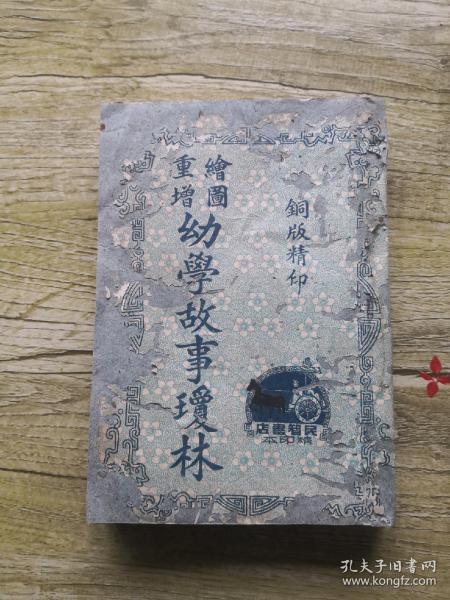 銅版精印
繪圖
重增
幼學故事瓊林
民智書店
精印本
孔夫子旧书网
www.kongfz.com